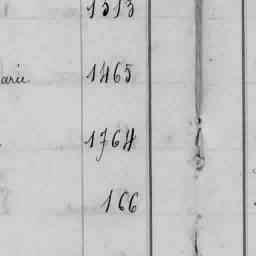 1513
arie 1465
1764
166